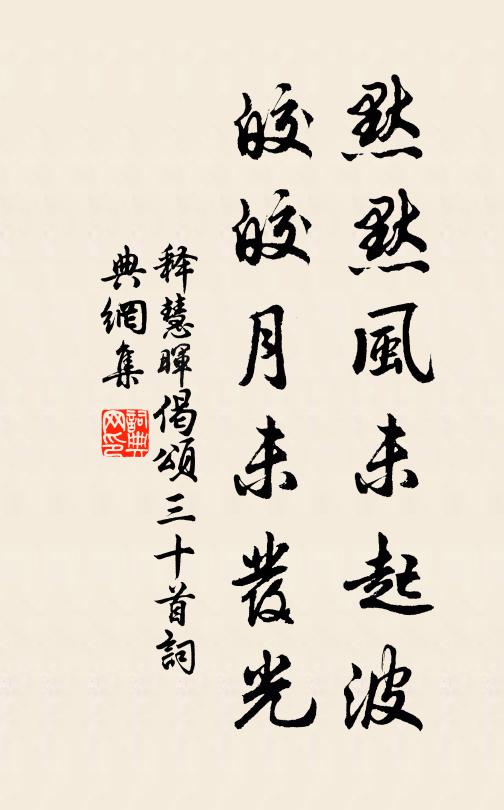 默默風未起波
皎皎月未發光
释慧暉偈頌三十首詞
典網集
詞典
网印